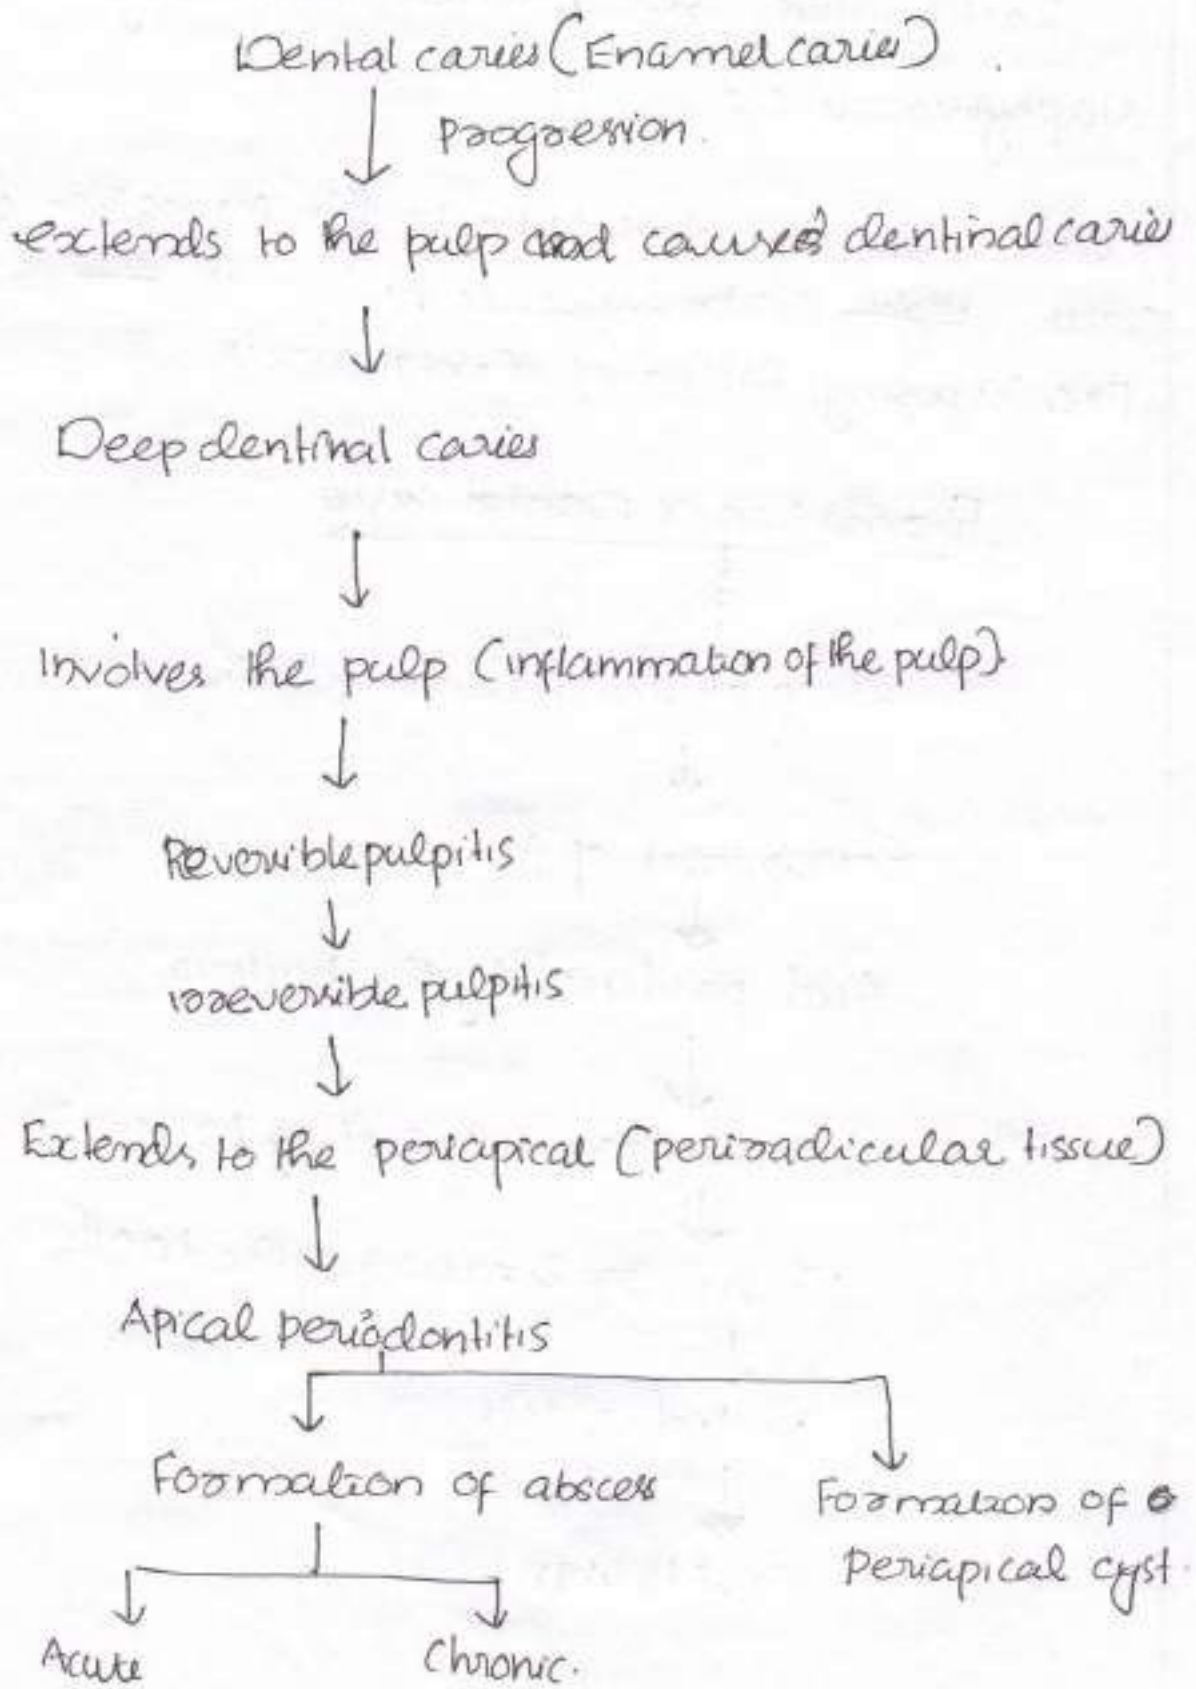 Dental caries (Enamel caries).
progression.
extends to the pulp and causes dentinal caries
Deep dentinal caries
Involves the pulp (inflammation of the pulp)
Reversible pulpitis
irreversible pulpitis
Extends to the periapical (periradicular tissue)
Apical periodontitis
Formation of abscess
Formation of
periapical cyst.
Acute
Chronic.